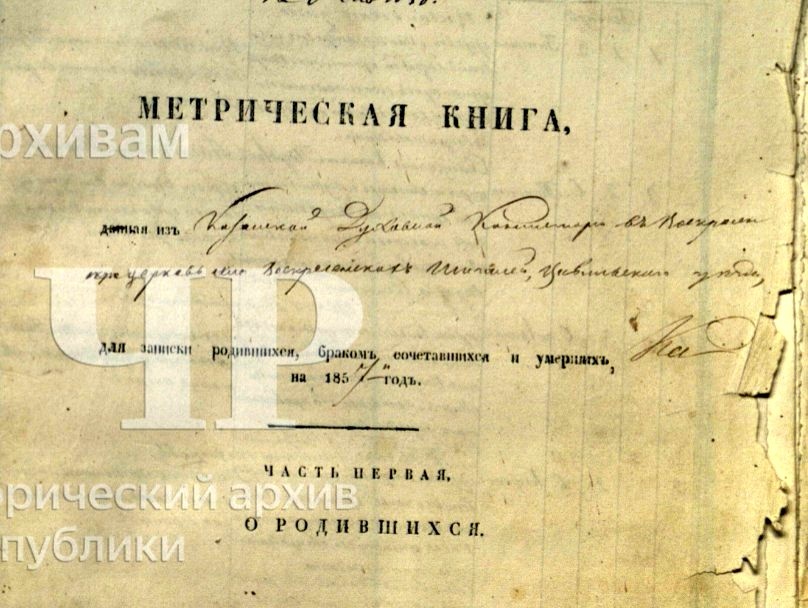 МЕТРИЧЕСКАЯ КНИГА,
рхивам
данная изъ Казанской Духовной Консисторіи въ Воскресен
церковь села Воскресенскихъ Цивильскаго уѣзда,
ЧР
для записки родившихся, бракомъ сочетавшихся и умершихъ,
на 1857 годъ.
ЧАСТЬ ПЕРВАЯ,
орический архив
О РОДИВШИХСЯ.
публики